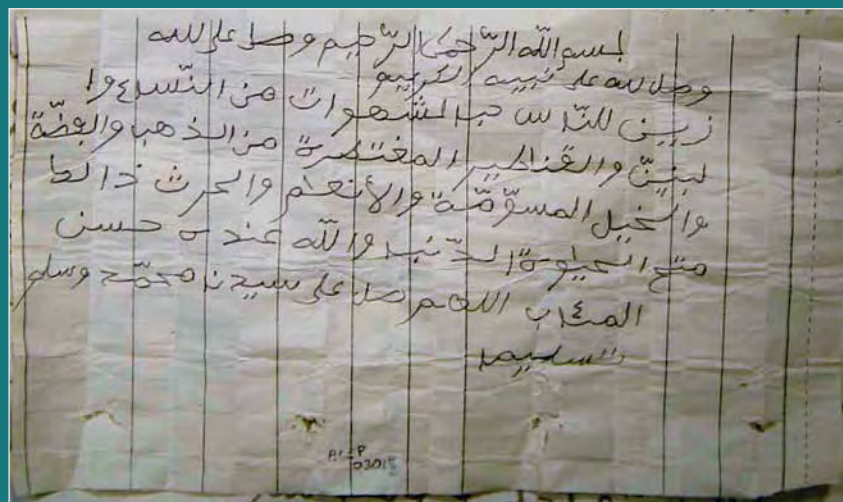 بسم الله الرّحمن الرّحيم وصل علىٰ لله
وصل لله على نبيه الكريم
زيين للنّاس حب الشهوات من النّساء وا
لبنينّ والقناطير المقنتطرة من الذهب والفضّة
والخيل المسوّمّة والأنعٰم والحرث ذالك
متع الحيوة الدّنيا والله عنده حسن
المئاب اللهم صل على سيدنا محمّد وسلم
تسليما
A1-P
03015